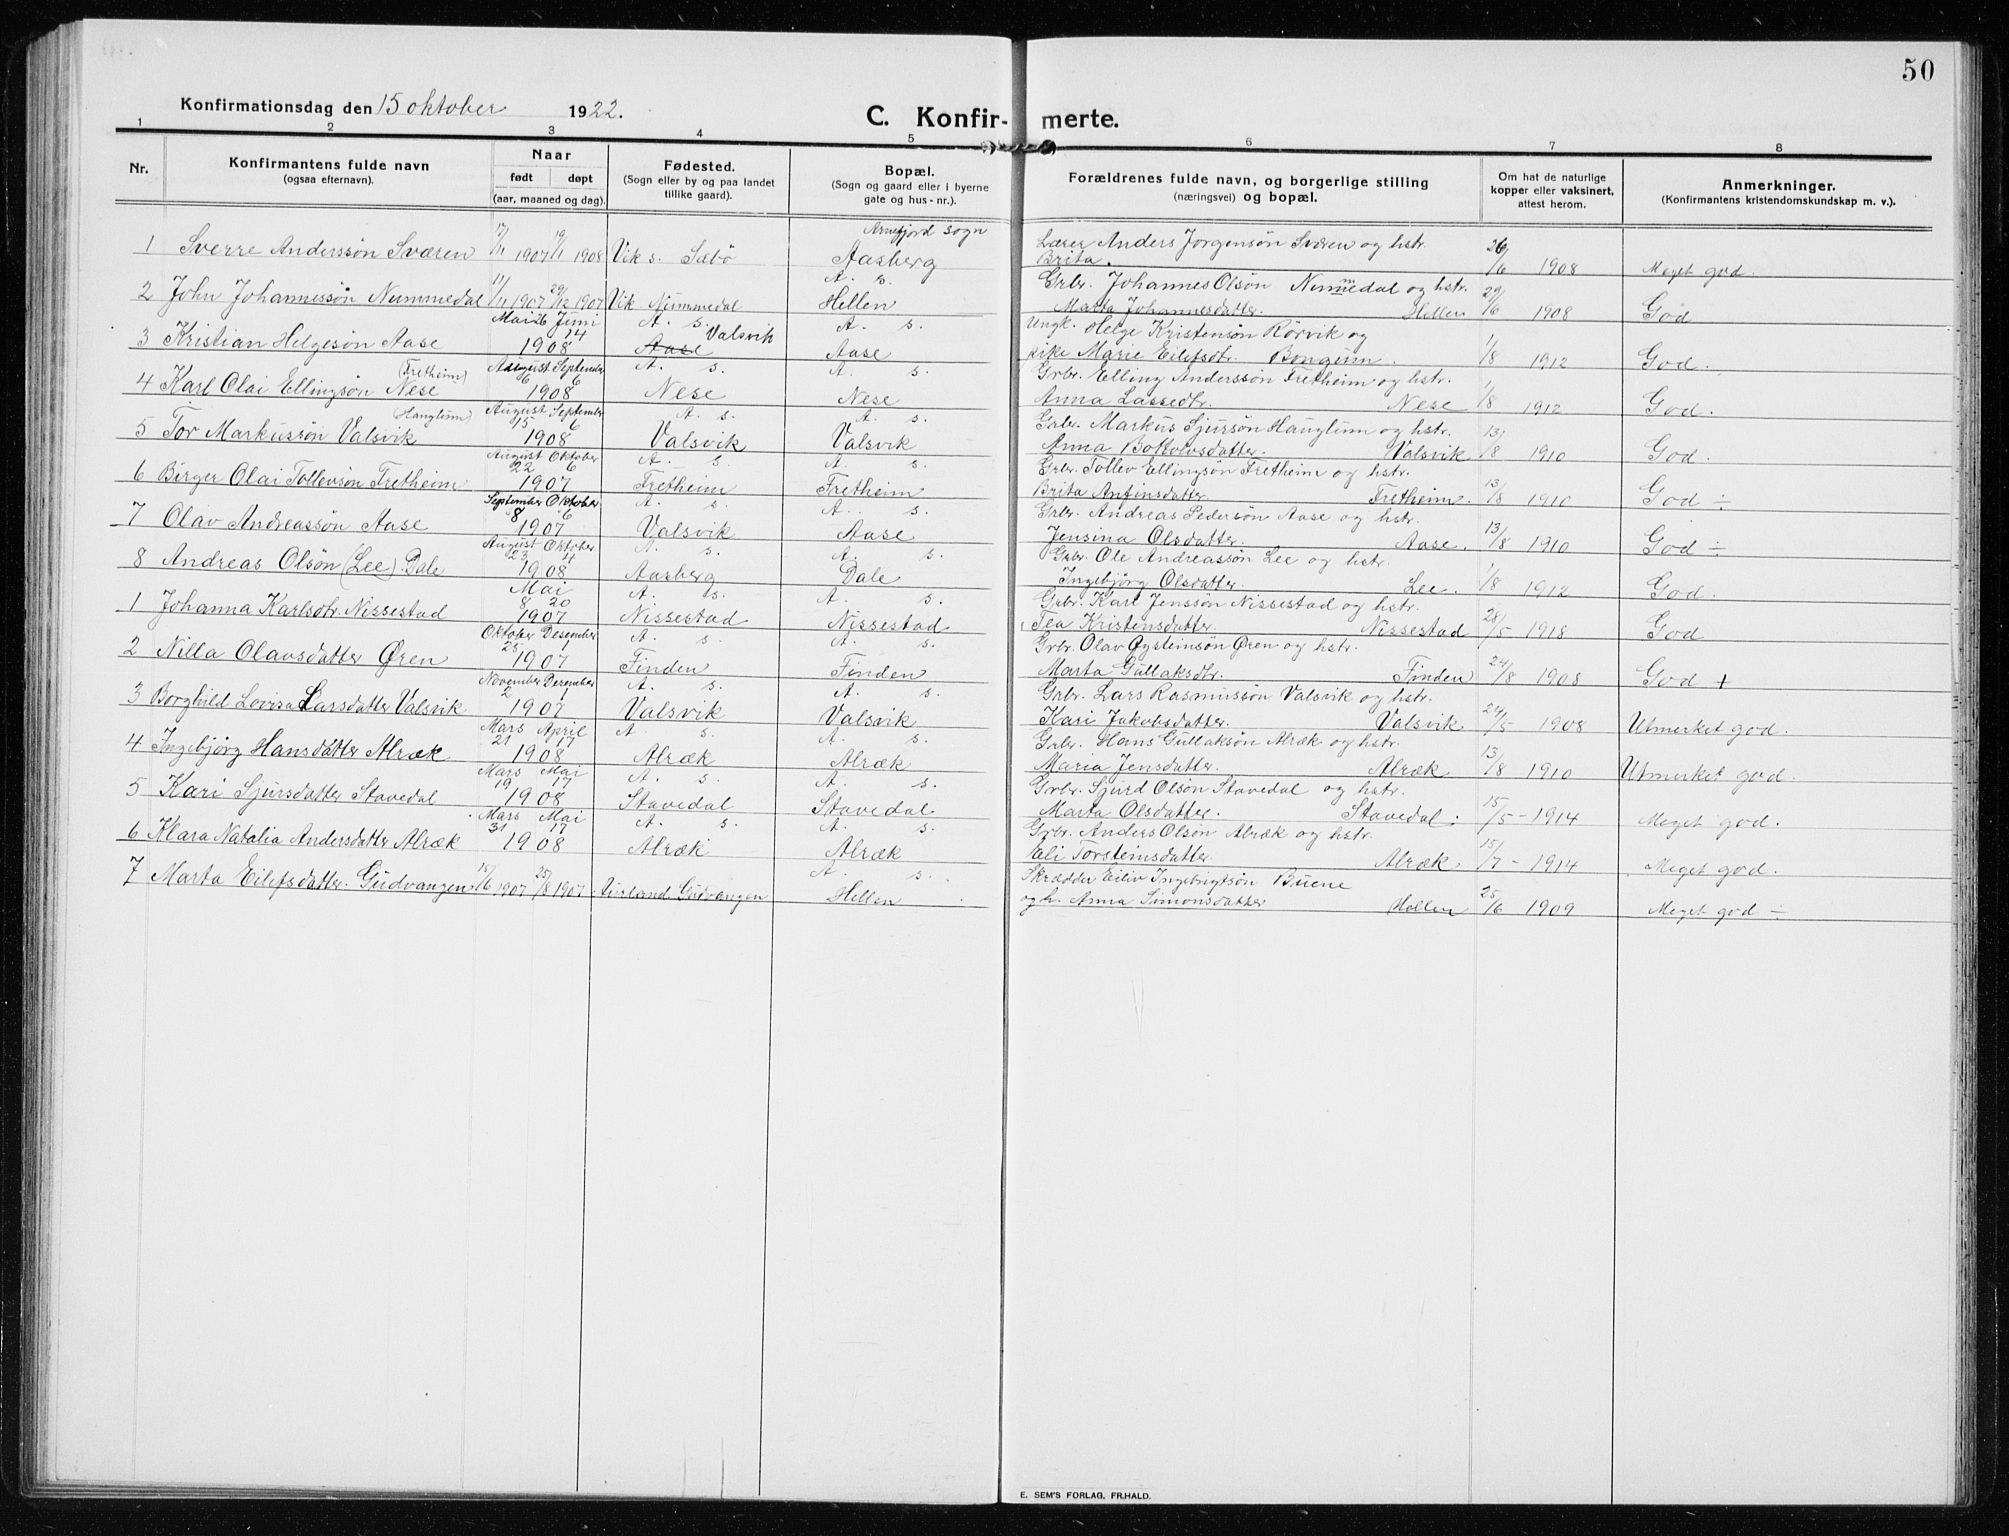 50
Konfirmationsdag den 15 oktober 1922.
C. Konfirmerte.
1 2 3 4 5 6 7 8
Nr.
Konfirmantens fulde navn
(ogsaa efternavn).
Naar
født døpt
(aar, maaned og dag).
Fødested.
(Sogn eller by og paa landet
tillike gaard).
Bopæl.
(Sogn og gaard eller i byerne
gate og hus-nr.).
Forældrenes fulde navn, og borgerlige stilling
(næringsvei) og bopæl.
Om hat de naturlige
kopper eller vaksinert,
attest herom.
Anmerkninger.
(Konfirmantens kristendomskundskap m. v.).
Arnefjord sogn
Lærer Anders Jorgensøn Sværen og hstr.
1 Sverre Anderssøn Sværen 17/11 1907 19/1 1908 Vik s. Sæbö Aasberg Brita. 26/6 1908 Meget god.
A. s. Grbr. Johannes Olsøn Nummedal og hstr.
2 John Johannessön Nummedal 11/11 1907 29/12 1907 Vik Nummedal Hellen Marta Johannesdatter. Hellen 29/6 1908 God
Mai 26 Juni 14 A. s. Valsvik A. s. Ungk. Helge Kristensøn Rörvik og
3 Kristian Helgesøn Aase 1908 Aase Aase pike Marie Eilefsdtr. Bongum. 1/8 1912 God.
(Fretheim) August 6 September 6 A. s. A. s. Grbr. Elling Anderssøn Fretheim og hstr.
4 Karl Olai Ellingsøn Nese 1908 Nese Nese Anna Lassedtr. Nese 1/8 1912 God.
(Hauglum) August 15 September 6 A. s. A. s. Grbr. Markus Sjursøn Hauglum og hstr.
5 Tor Markussøn Valsvik 1908 Valsvik Valsvik Anna Botolvsdatter. Valsvik 13/8 1910 God.
August 22 Oktober 6 A. s. A. s. Grbr. Tollev Ellingsøn Fretheim og hstr.
6 Birger Olai Tollevsøn Fretheim 1907 Fretheim Fretheim Brita Anfinsdatter Fretheim. 13/8 1910 God ÷
September 8 Oktober 6 A. s. A. s. Grbr. Andreas Pedersøn Aase og hstr.
7 Olav Andreassøn Aase 1907 Valsvik Aase Jensina Olsdatter. Aase. 13/8 1910 God ÷
August 23 Oktober 4 A. s. A. s. Grbr. Ole Andreassøn Lee og hstr.
8 Andreas Olsøn (Lee) Dale 1908 Aasberg Dale Ingebjörg Olsdatter. Lee. 1/8 1912 God.
Mai 8 20 A. s. A. s. Grbr. Karl Jenssøn Nissestad og hstr.
1 Johanna Karlsdtr. Nissestad 1907 Nissestad Nissestad Tea Kristensdatter. Nissestad 28/5 1918 God
Oktober 25 Desember 1 A. s. A. s. Grbr. Olav Øysteinsøn Øren og hstr.
2 Nilla Olavsdatter Øren 1907 Finden Finden Marta Gullaksdtr. Finden 24/8 1908 God +
November 2 Desember 1 A. s. A. s. Grbr. Lars Rasmussøn Valsvik og hstr.
3 Borghild Lovisa Larsdatter Valsvik 1907 Valsvik Valsvik Kari Jakobsdatter. Valsvik 24/5 1908 Utmerket god.
Mars 21 April 17 A. s. A. s. Grbr. Hans Gullaksøn Alræk og hstr.
4 Ingebjørg Hansdatter Alræk 1908 Alræk Alræk Maria Jensdatter. Alræk 13/8 1910 Utmerket god.
Mars 19 Mai 17 A. s. A. s. Grbr. Sjurd Olsøn Stavedal og hstr.
5 Kari Sjursdatter Stavedal 1908 Stavedal Stavedal Marta Olsdatter. Stavedal. 15/5 - 1914 Meget god.
Mars 31 Mai 17 A. s. A. s. Grbr. Anders Olsøn Alræk og hstr.
6 Klara Natalia Andersdatter Alræk 1908 Alræk Alræk Eli Torsteinsdatter Alræk 15/7 - 1914 Meget god.
A. s. Skrædder Eiliv Ingebrigtsøn Buene
7 Marta Eilefsdatter Gudvangen 15/6 1907 25/8 1907 Aurland Gudvangen Hellen og h. Anna Simonsdatter Hellen 25/6 1909 Meget god ÷
E. SEM'S FORLAG, FR.HALD.